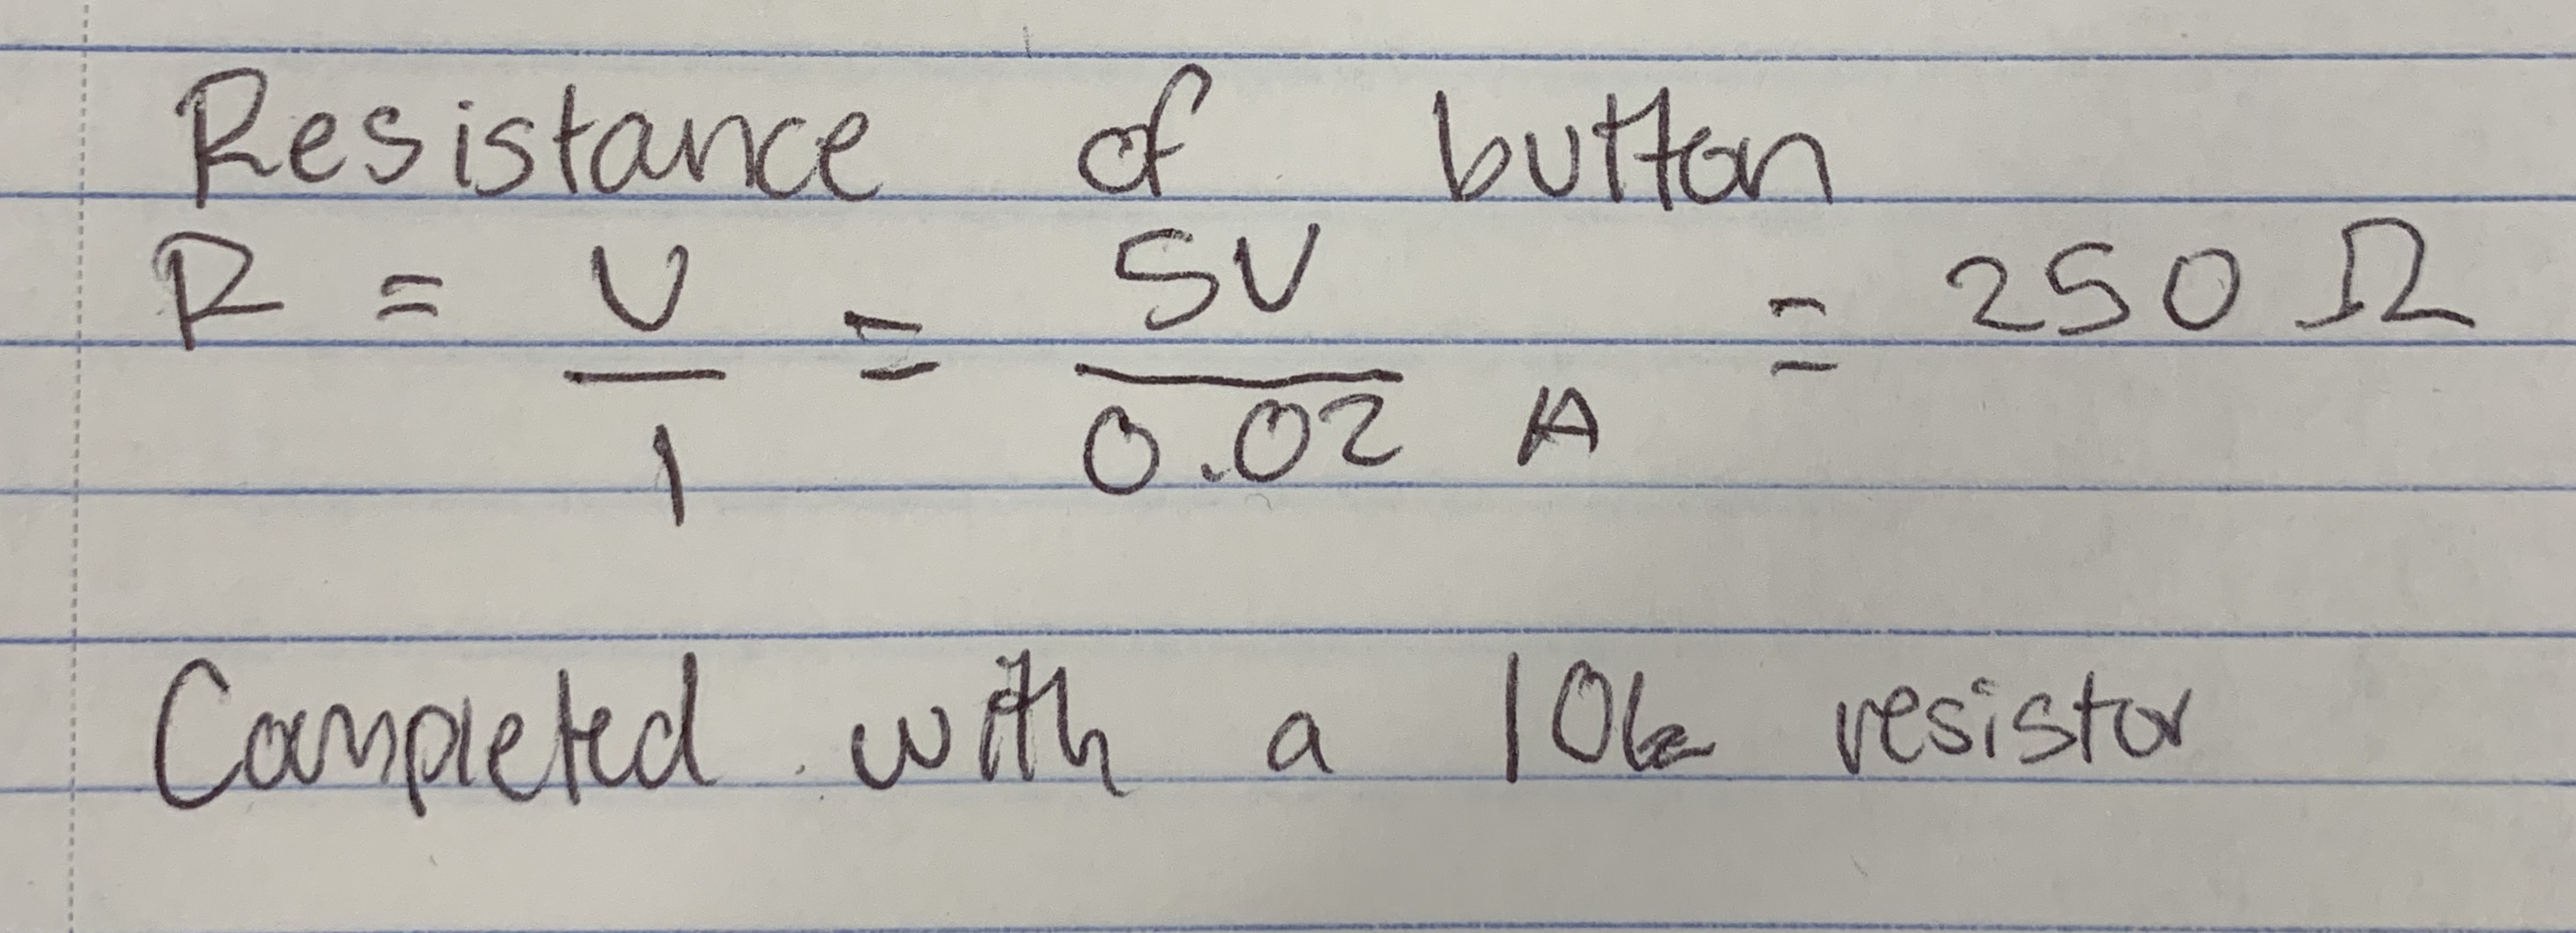 Resistance of button
R = V/I = 5V/0.02 A = 250 Ω
Completed with a 10k resistor